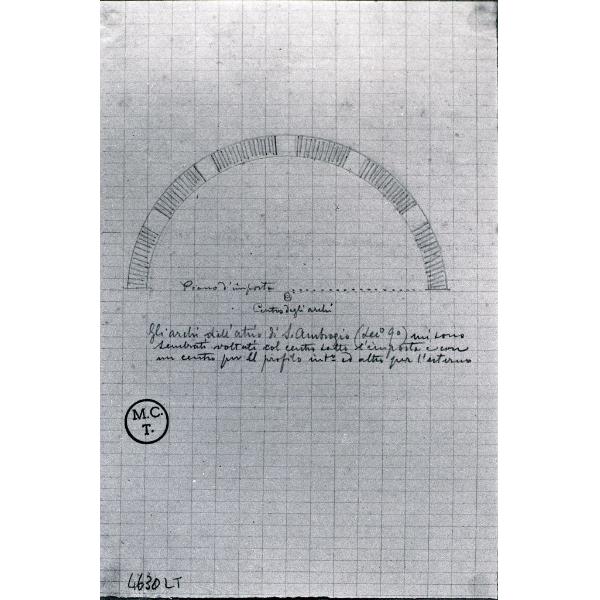 Piano d'imposta
Centro degli archi
Gli archi dell'atrio di S. Ambrogio (Sec.º 9º) mi sono
sembrati voltati col centro sotto l'imposta e con
un centro per il profilo int.º ed altro per l'esterno
M.C.
T.
4630 LT